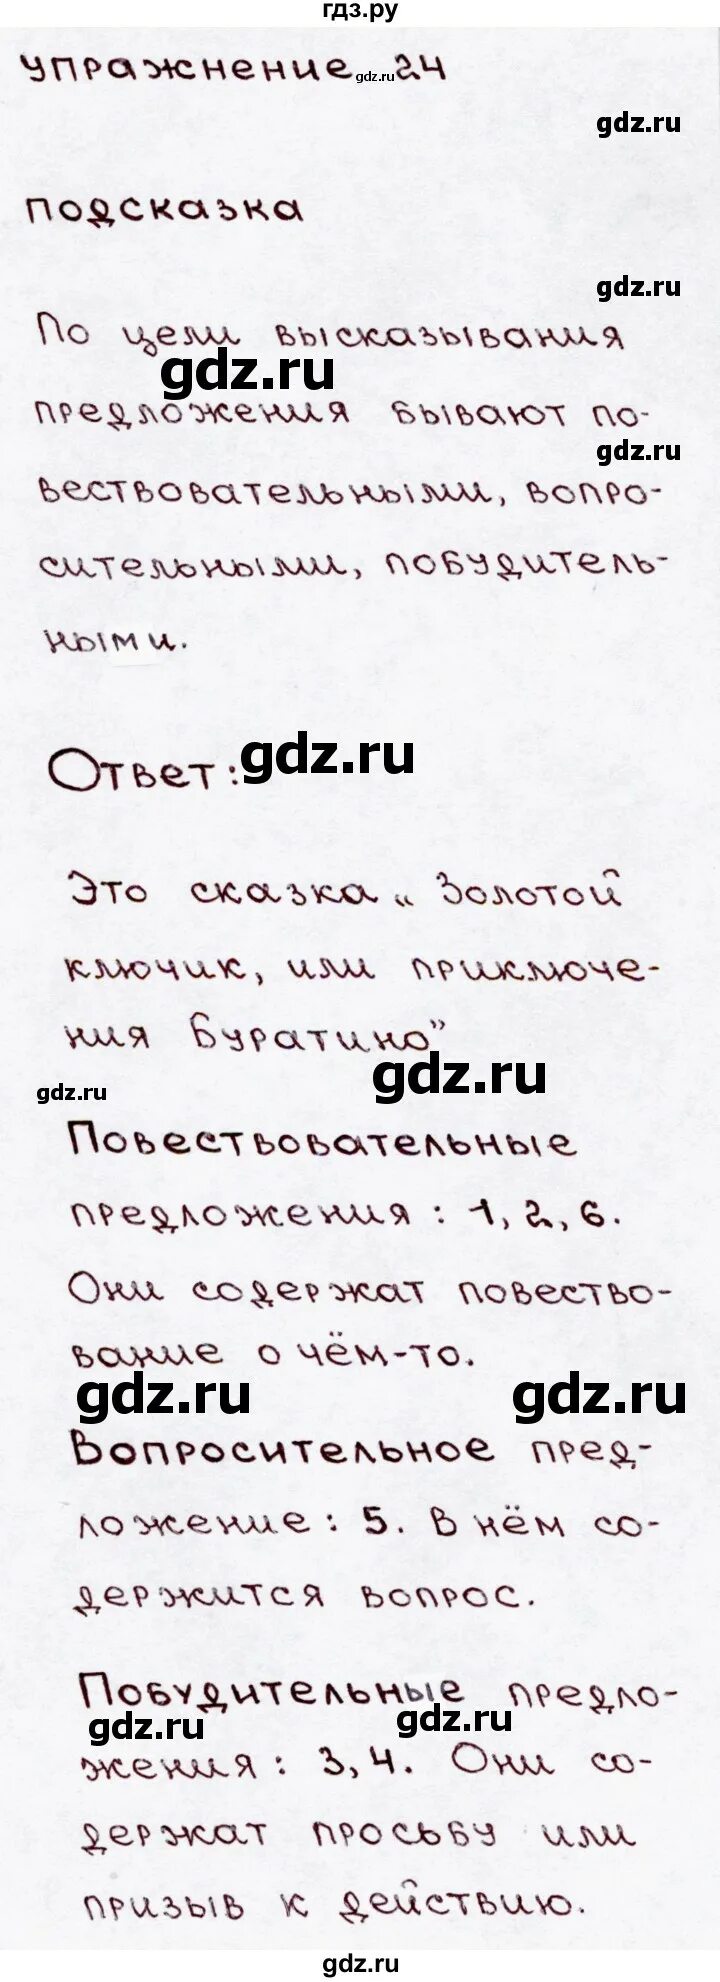 гдз.ру
упражнение gdz.ru 24
gdz.ru
подсказка
gdz.ru
По цели высказывания
gdz.ru
предложения бывают по-
gdz.ru
вествовательными, вопро-
сительными, побудитель-
ными.
Ответ: gdz.ru
Это сказка „Золотой
ключик, или приключе-
ния Буратино”
gdz.ru
gdz.ru
Повествовательные
предложения: 1, 2, 6.
Они содержат повество-
вание о чём-то.
gdz.ru gdz.ru
Вопросительное пред-
ложение: 5. В нём со-
держится вопрос.
Побудительные предло-
gdz.ru gdz.ru
жения: 3, 4. Они со-
держат просьбу или
призыв к действию.
gdz.ru